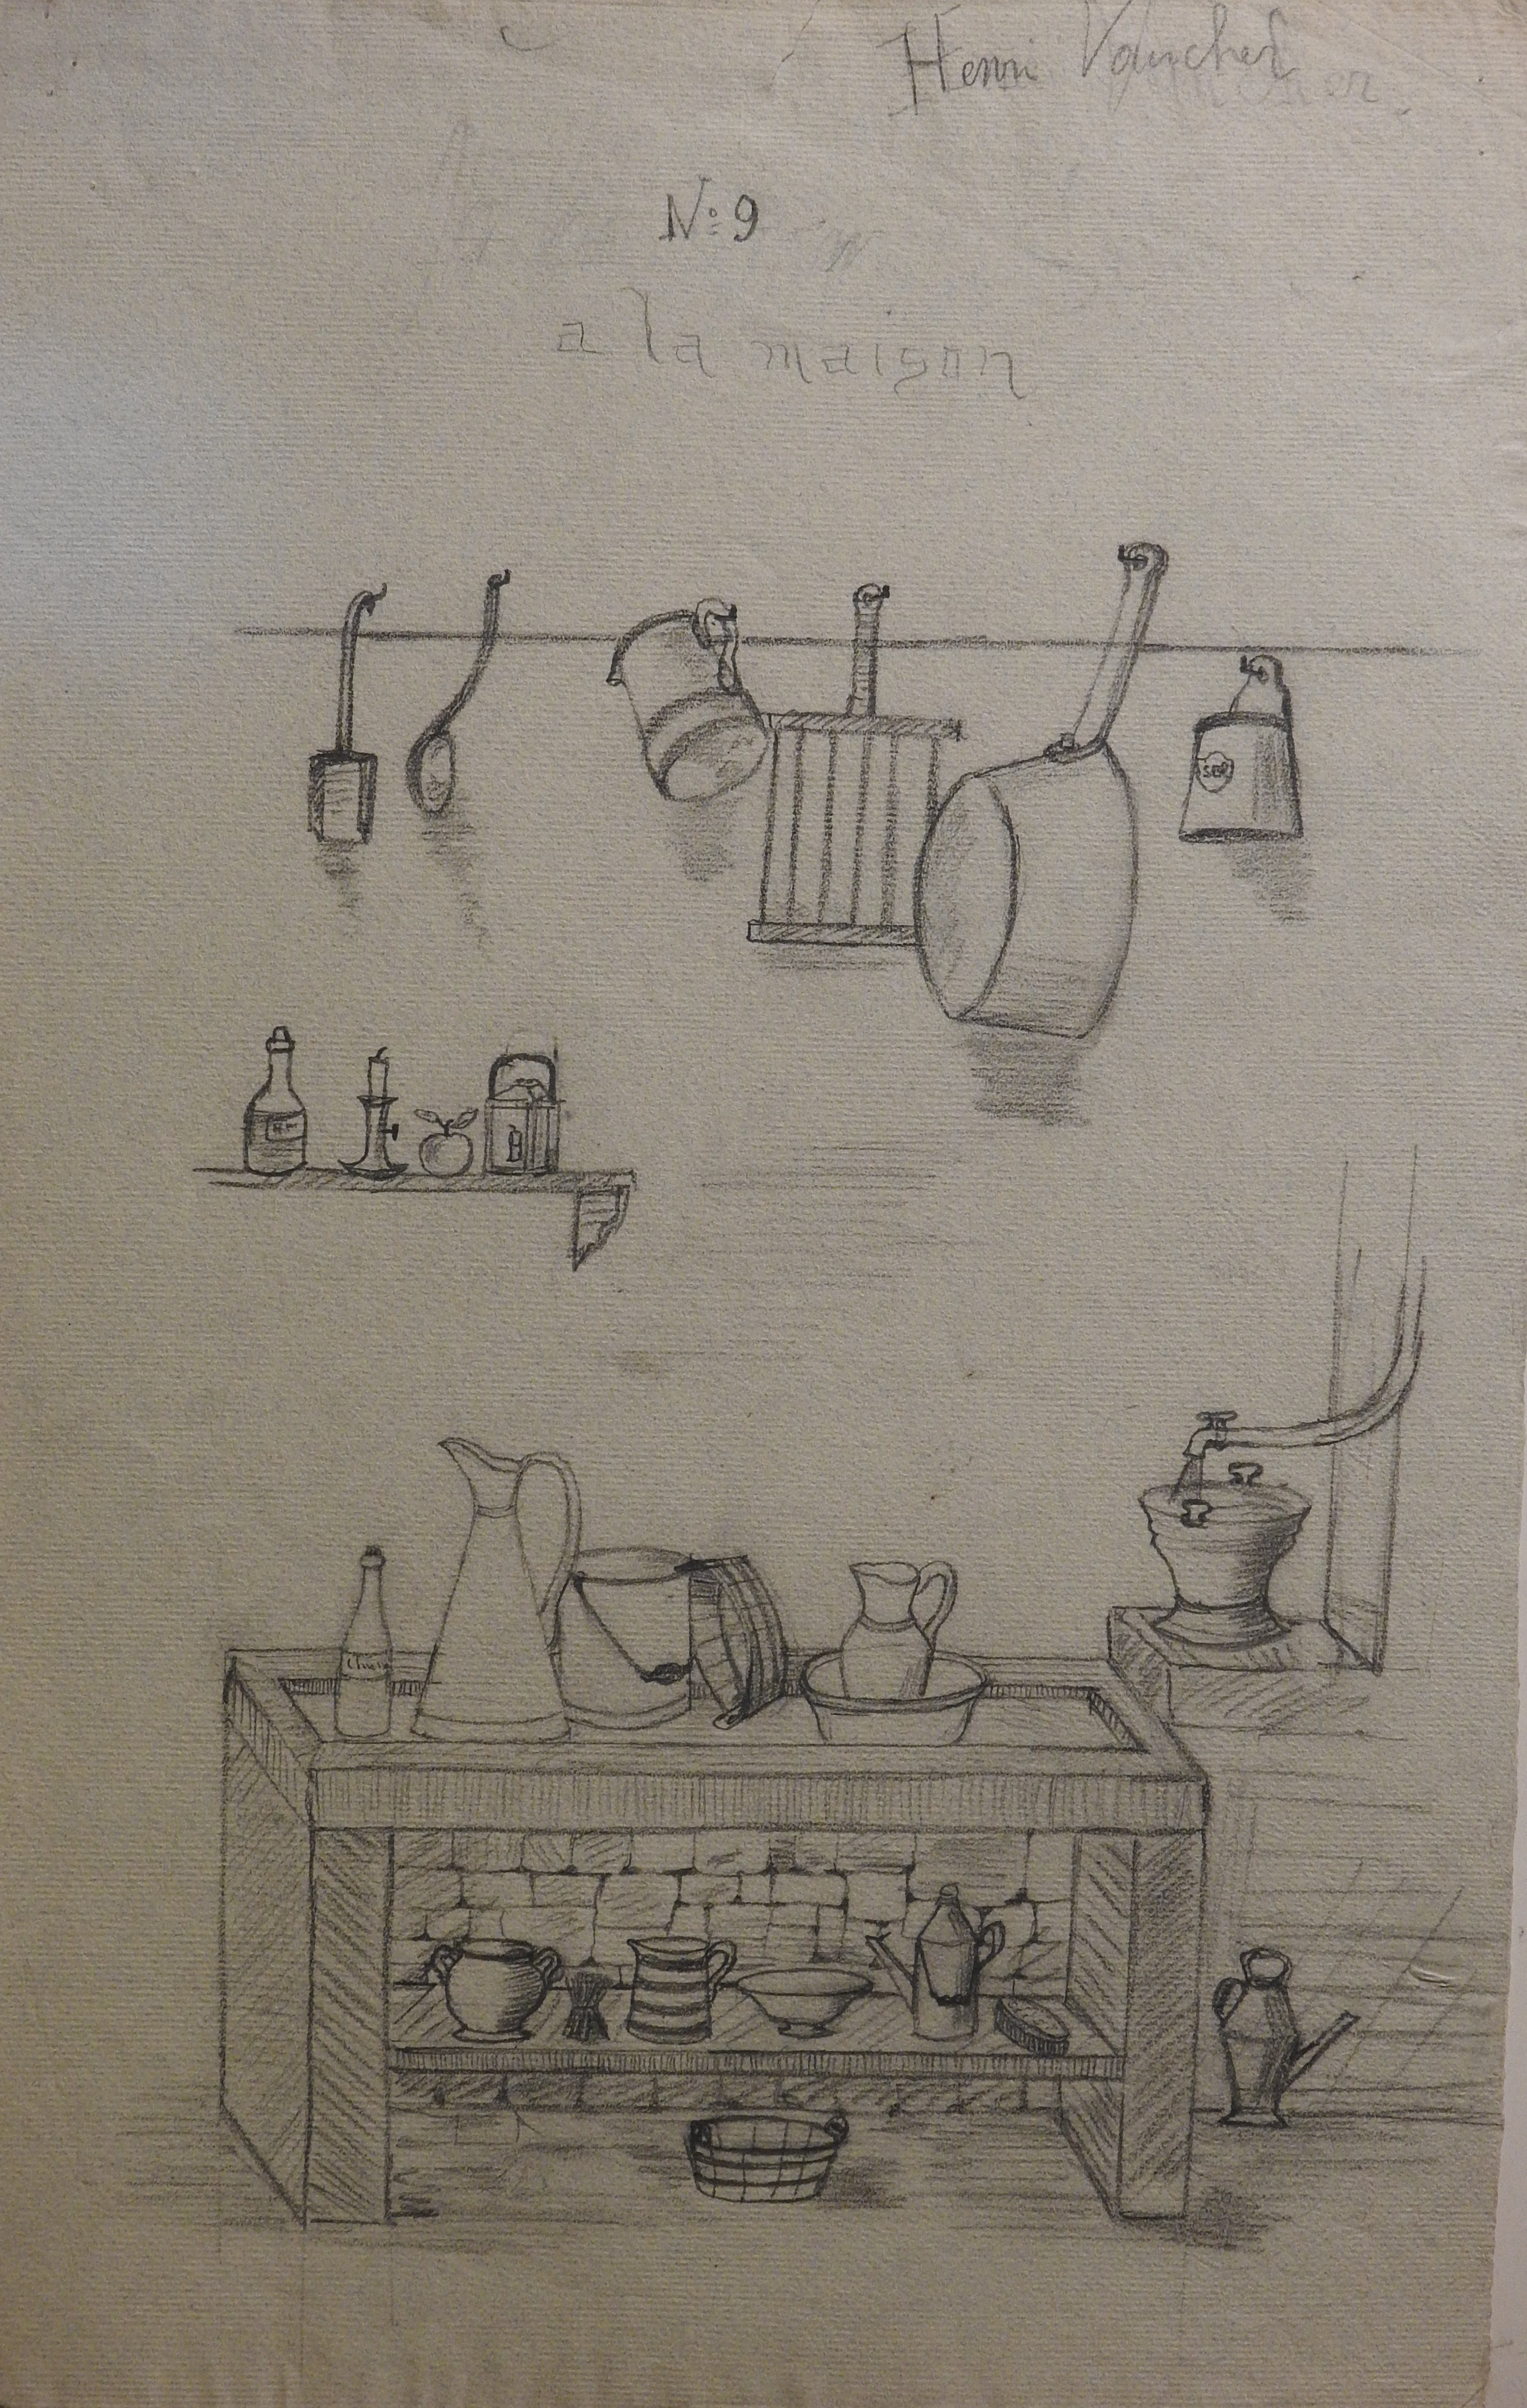 Henri Vaucher
N° 9
a la maison
SEL